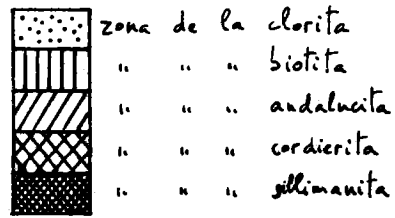 zona de la clorita
" " " biotita
" " " andalucita
" " " cordierita
" " " sillimanita